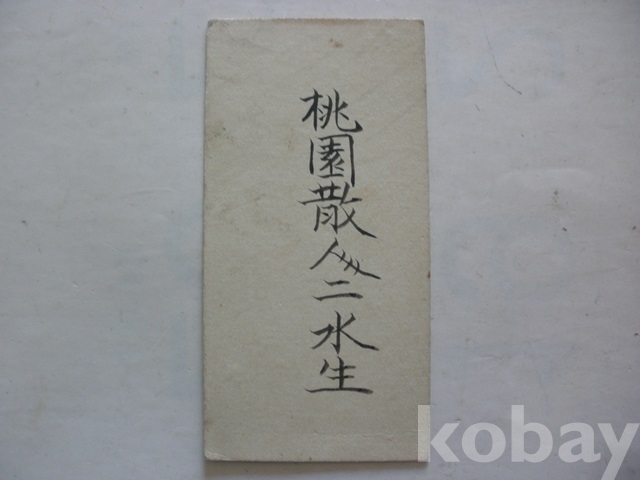 桃園散人从二水生
kobay